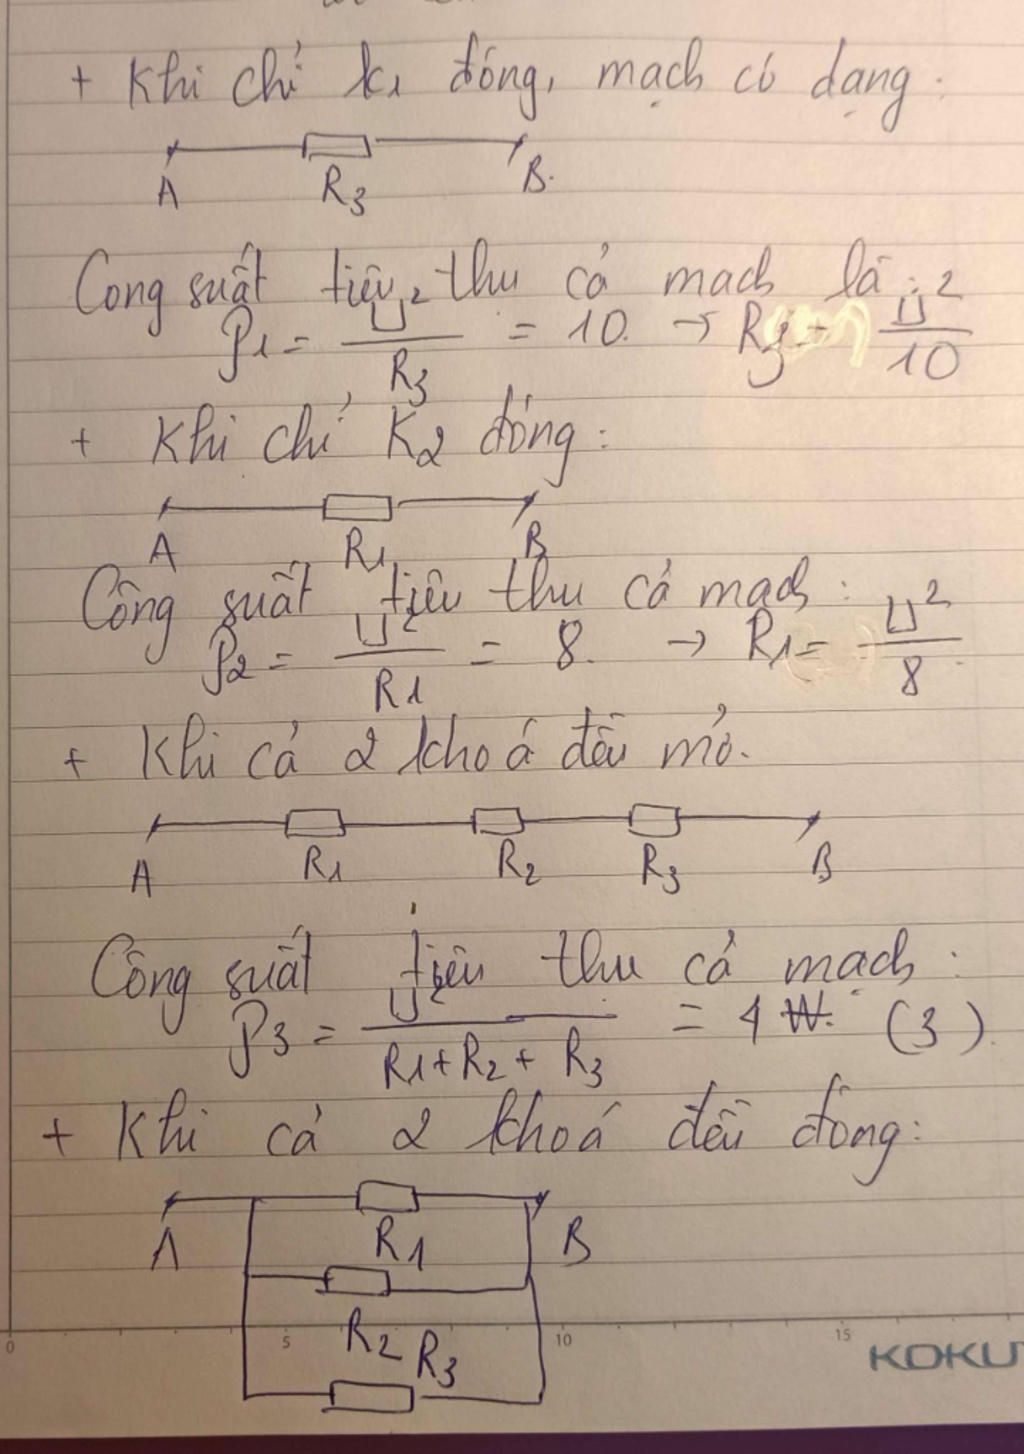 + Khi chỉ K1 đóng, mạch có dạng:
A R3 B.
Cong suất tiêu thu cả mach là:
P1 = U² / R3 = 10. → R3 = U² / 10
+ Khi chỉ K2 đóng:
A R1 B
Công suất tiêu thu cả mach:
P2 = U² / R1 = 8. → R1 = U² / 8
+ Khi cả 2 khoá đều mở.
A R1 R2 R3 B
Công suất tiêu thu cả mạch:
P3 = U² / R1 + R2 + R3 = 4 W. (3)
+ Khi cả 2 khoá đều đóng:
A R1 B
R2
R3
0 5 10 15
KOKU